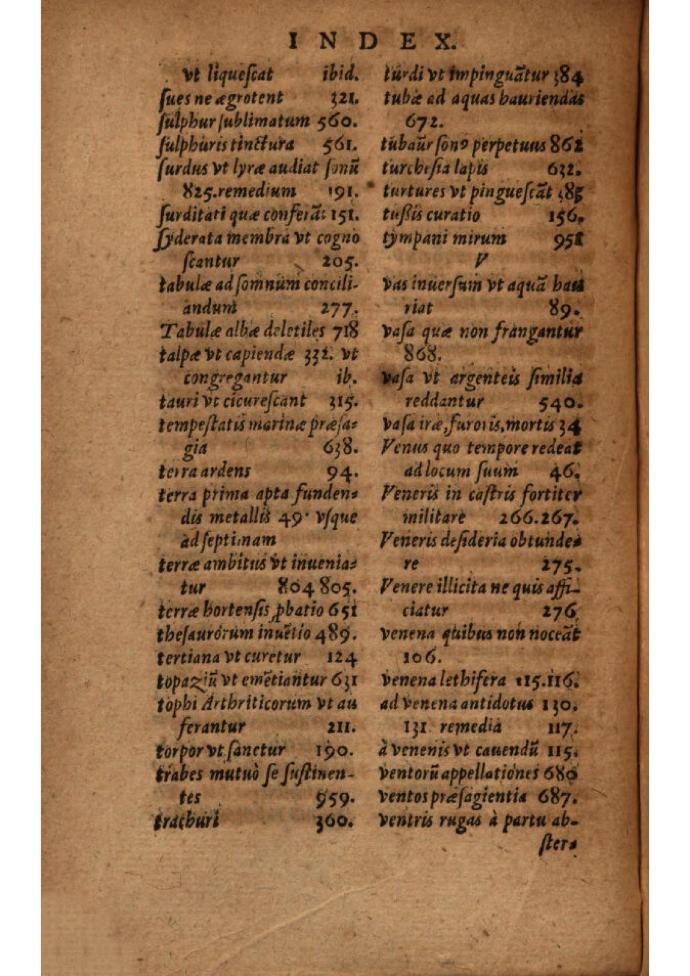 INDEX.
vt liqueſcat ibid.
ſues ne ægrotent 321.
ſulphur ſublimatum 560.
ſulphuris tinctura 561.
ſurdus vt lyræ audiat ſonū
825. remedium 191.
ſurditati quæ conferāt 151.
ſyderata membra vt cogno
ſcantur 205.
tabulæ ad ſomnum concili-
andum 277.
Tabulæ albæ deletiles 718
talpæ vt capiendæ 332. vt
congregantur ib.
tauri vt cicureſcant 315.
tempeſtatis marinæ præſa-
gia 638.
terra ardens 94.
terra prima apta funden-
dis metallis 49. vſque
ad ſeptimam
terræ ambitus vt inuenia-
tur 804 805.
terræ hortenſis ꝓbatio 651
theſaurorum inuētio 489.
tertiana vt curetur 124
topaziū vt emētiantur 631
tophi Arthriticorum vt au
ferantur 211.
torpor vt ſanetur 190.
trabes mutuò ſe ſuſtinen-
tes 959.
trachuri 360.
turdi vt impinguātur 384
tubæ ad aquas hauriendas
672.
tubaūr ſonꝰ perpetuus 862
turcheſia lapis 632.
turtures vt pingueſcāt 385
tuſsis curatio 156.
tympani mirum 951
V
vas inuerſum vt aquā hau
riat 89.
vaſa quæ non frangantur
868.
vaſa vt argenteis ſimilia
reddantur 540.
vaſa iræ, furoris, mortis 34
Venus quo tempore redeat
ad locum ſuum 46.
Veneris in caſtris fortiter
militare 266.267.
Veneris deſideria obtunde-
re 275.
Venere illicita ne quis affi-
ciatur 276
venena quibus non noceāt
106.
venena lethifera 115.116.
ad venena antidotus 130.
131. remedia 117.
à venenis vt cauendū 115.
ventorū appellationes 680
ventos præſagientia 687.
ventris rugas à partu ab-
ſter-